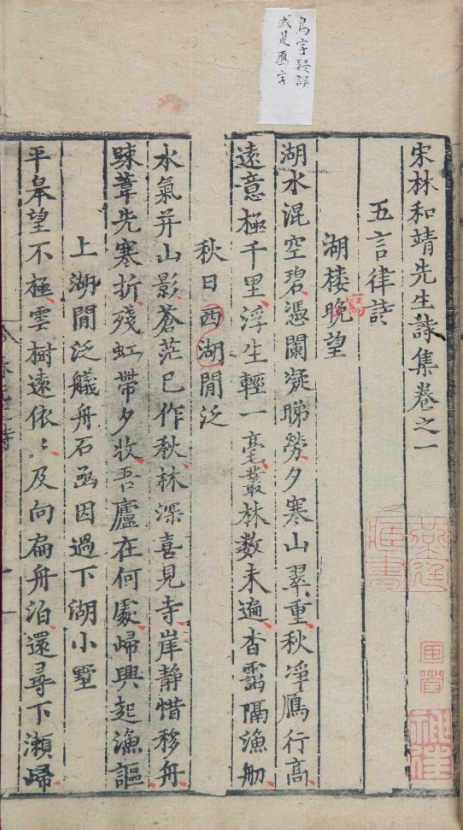 字疑誤
或是鴈字
宋林和靖先生詩集卷之一
五言律詩
湖樓晚望
湖水混空碧憑闌凝睇勞夕寒山翠重秋淨鴈行高
遠意極千里浮生輕一毫叢林数未遍杳靄隔漁舠
秋日西湖閒泛
水氣并山影蒼茫已作秋林深喜見寺岸静惜移舟
踈葦先寒折殘虹帶夕收吾廬在何處歸興起漁謳
上湖閒泛艤舟石函因過下湖小墅
平皋望不極雲樹遠依〻及向扁舟泊還尋下瀬歸
燕庭藏書